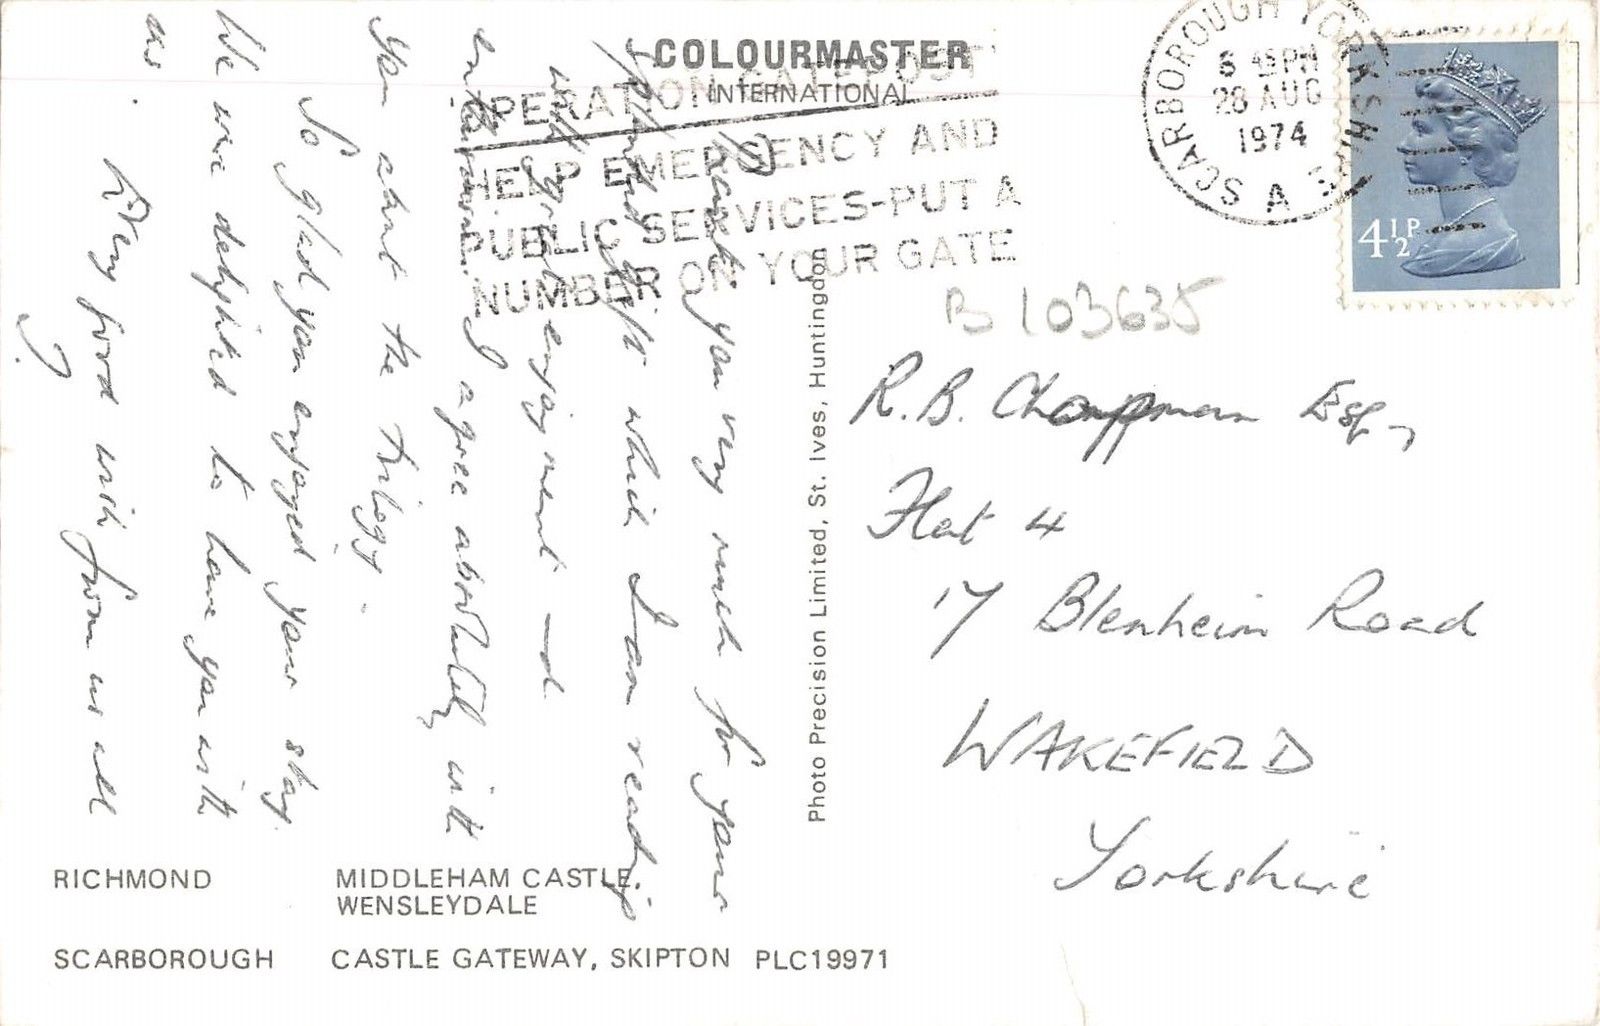 COLOURMASTER
INTERNATIONAL
OPERATION GATEPOST
HELP EMERGENCY AND
PUBLIC SERVICES-PUT A
NUMBER ON YOUR GATE
SCARBOROUGH YORKSHIRE
45 PM
28 AUG
1974
A
4½P
B 103635
R.B. Chappman Esq.,
Flat 4
17 Blenheim Road
WAKEFIELD
Yorkshire
Thank you very much for your
splendid gift which I am reading
with great enjoyment and
entertainment. I agree absolutely with
you about the trilogy.
So glad you enjoyed your stay.
We were delighted to have you with
us.
Very fond wish from us all
J.
Photo Precision Limited, St. Ives, Huntingdon
RICHMOND MIDDLEHAM CASTLE,
WENSLEYDALE
SCARBOROUGH CASTLE GATEWAY, SKIPTON PLC19971